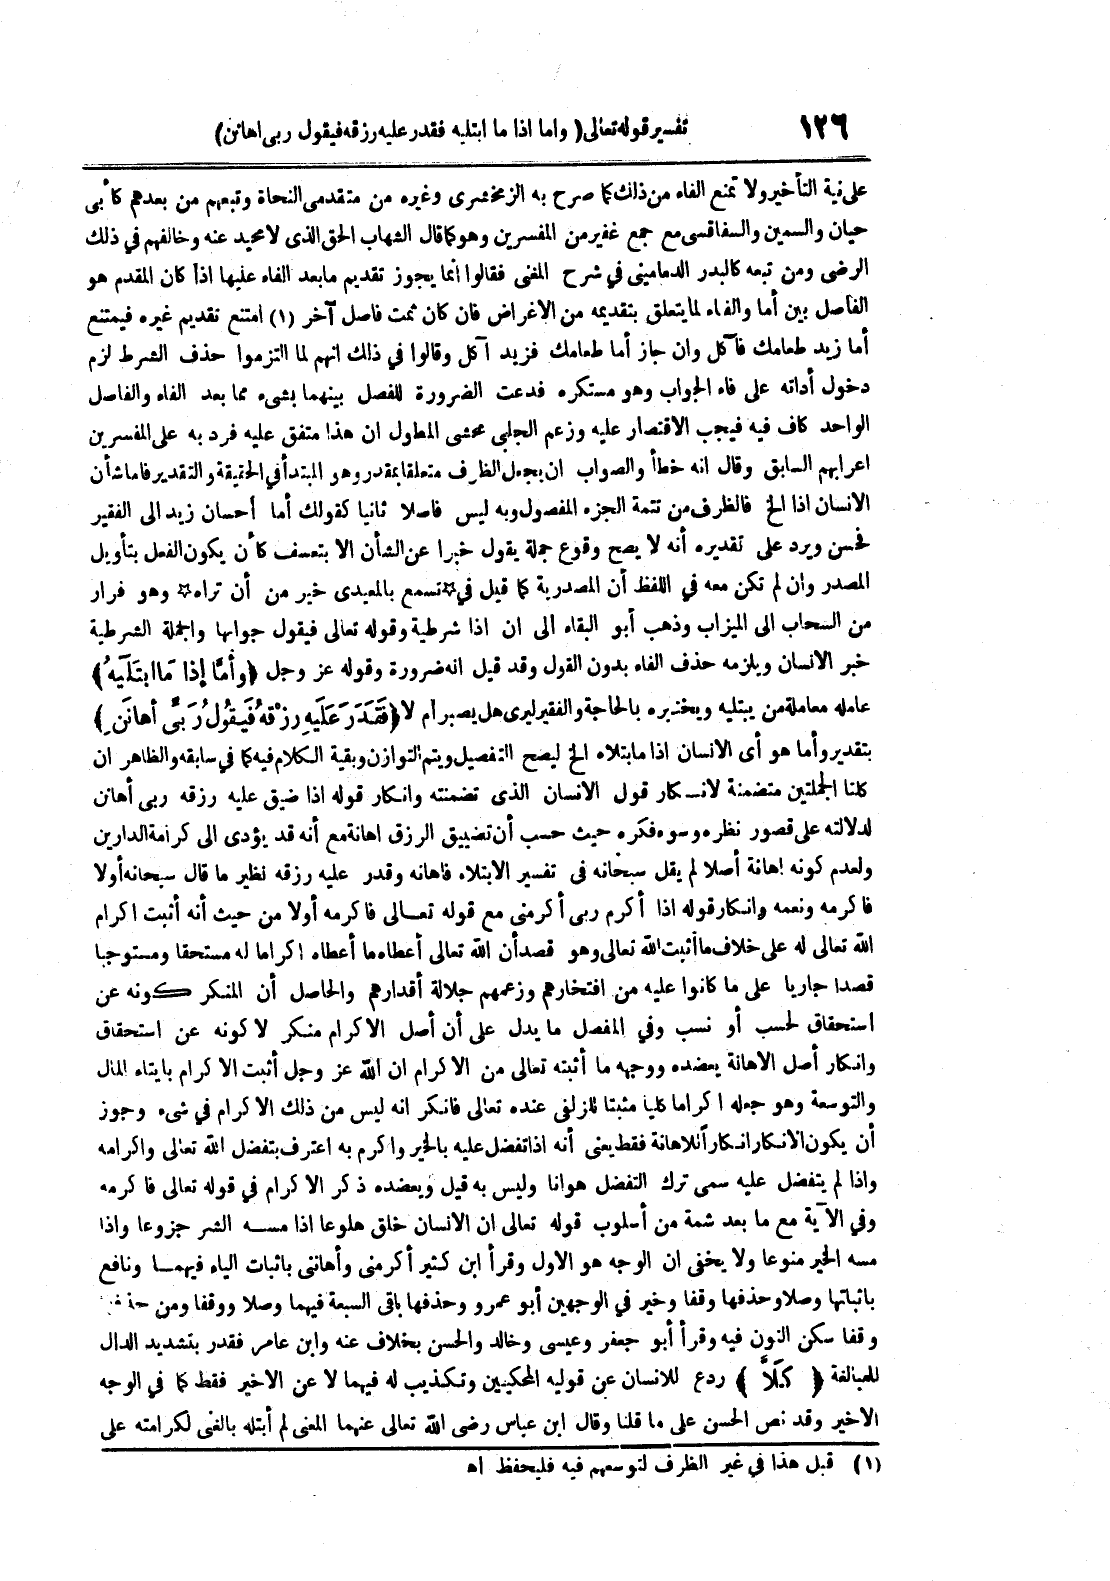 ١٢٦ تفسير قوله تعالى ( واما اذا ما ابتليه فقدر عليه رزقه فيقول ربى اهانن )
على نية التأخير ولا تمنع الفاء من ذلك كما صرح به الزمخشرى وغيره من متقدمى النحاة وتبعهم من بعدهم كأبى
حيان والسمين والسفاقسى مع جمع غفير من المفسرين وهو كما قال الشهاب الحق الذى لامحيد عنه وخالفهم في ذلك
الرضى ومن تبعه كالبدر الدمامينى في شرح المغنى فقالوا انما يجوز تقديم مابعد الفاء عليها اذا كان المقدم هو
الفاصل بين أما والفاء لما يتعلق بتقديمه من الاغراض فان كان ثمت فاصل آخر (١) امتنع تقديم غيره فيمتنع
أما زيد طعامك فآكل وان جاز أما طعامك فزيد آكل وقالوا في ذلك انهم لما التزموا حذف الشرط لزم
دخول أداته على فاء الجواب وهو مستكره فدعت الضرورة للفصل بينهما بشىء مما بعد الفاء والفاصل
الواحد كاف فيه فيجب الاقتصار عليه وزعم الجلبي محشى المطول ان هذا متفق عليه فرد به على المفسرين
اعرابهم السابق وقال انه خطأ والصواب ان يجعل الظرف متعلقا بمقدر وهو المبتدأ في الحقيقة والتقدير فاما شأن
الانسان اذا الخ فالظرف من تتمة الجزء المفصول وبه ليس فاصلا ثانيا كقولك أما أحسان زيد الى الفقير
فحسن ويرد على تقديره أنه لا يصح وقوع جملة يقول خبرا عن الشأن الا بتعسف كأن يكون الفعل بتأويل
المصدر وان لم تكن معه في اللفظ أن المصدرية كما قيل في ☆ تسمع بالمعيدى خير من أن تراه ☆ وهو فرار
من السحاب الى الميزاب وذهب أبو البقاء الى ان اذا شرطية وقوله تعالى فيقول جوابها والجملة الشرطية
خبر الانسان ويلزمه حذف الفاء بدون القول وقد قيل انه ضرورة وقوله عز وجل ﴿ وَأَمَّا إِذَا مَا ابْتَلَيهُ ﴾
عامله معاملة من يبتليه ويختبره بالحاجة والفقير ليرى هل يصبر أم لا ﴿ فَقَدَرَ عَلَيهِ رِزْقَهُ فَيَقُولُ رَبِّي أهانَنِ ﴾
بتقدير وأما هو أى الانسان اذا مابتلاه الخ ليصح التفصيل ويتم التوازن وبقية الكلام فيه كما في سابقه والظاهر ان
كلتا الجملتين متضمنة لانكار قول الانسان الذى تضمنته وانكار قوله اذا ضيق عليه رزقه ربى أهانن
لدلالته على قصور نظره وسوء فكره حيث حسب أن تضييق الرزق اهانة مع أنه قد يؤدى الى كرامة الدارين
ولعدم كونه اهانة أصلا لم يقل سبحانه فى تفسير الابتلاء فاهانه وقدر عليه رزقه نظير ما قال سبحانه أولا
فاكرمه ونعمه وانكار قوله اذا أكرم ربى أكرمنى مع قوله تعالى فاكرمه أولا من حيث أنه أثبت اكرام
الله تعالى له على خلاف ما أثبت الله تعالى وهو قصد أن الله تعالى أعطاه ما أعطاه اكراما له مستحقا ومستوجبا
قصدا جاريا على ما كانوا عليه من افتخارهم وزعمهم جلالة أقدارهم والحاصل أن المنكر كونه عن
استحقاق لحسب أو نسب وفي المفصل ما يدل على أن أصل الاكرام منكر لا كونه عن استحقاق
وانكار أصل الاهانة يعضده ووجهه ما أثبته تعالى من الاكرام ان الله عز وجل أثبت الاكرام بايتاء المال
والتوسعة وهو جعله اكراما كليا مثبتا للزلفى عنده تعالى فانكر انه ليس من ذلك الاكرام في شىء وجوز
أن يكون الانكار انكارا للاهانة فقط يعنى أنه اذا تفضل عليه بالخير واكرم به اعترف بتفضل الله تعالى واكرامه
واذا لم يتفضل عليه سمى ترك التفضل هوانا وليس به قيل ويعضده ذكر الاكرام في قوله تعالى فاكرمه
وفي الآية مع ما بعد شمة من أسلوب قوله تعالى ان الانسان خلق هلوعا اذا مسه الشر جزوعا واذا
مسه الخير منوعا ولا يخفى ان الوجه هو الاول وقرأ ابن كثير أكرمنى وأهاننى باثبات الياء فيهما ونافع
باثباتها وصلا وحذفها وقفا وخير في الوجهين أبو عمرو وحذفها باقى السبعة فيهما وصلا ووقفا ومن
وقفا سكن النون فيه وقرأ أبو جعفر وعيسى وخالد والحسن بخلاف عنه وابن عامر فقدر بتشديد الدال
للمبالغة ﴿ كَلَّا ﴾ ردع للانسان عن قوليه المحكيين وتكذيب له فيهما لا عن الاخير فقط كما في الوجه
الاخير وقد نص الحسن على ما قلنا وقال ابن عباس رضى الله تعالى عنهما المعنى لم أبتله بالغنى لكرامته على
(١) قبل هذا في غير الظرف لتوسعهم فيه فليحفظ اه